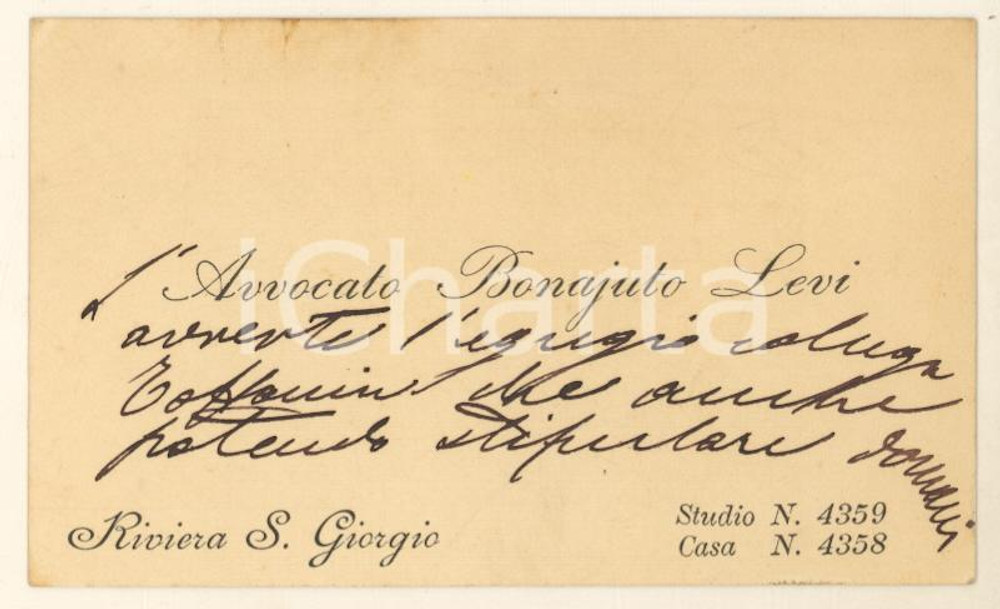 l'Avvocato Bonajuto Levi
avverte l'egregio collega
che anche
potendo stipulare domani
Riviera S. Giorgio
Studio N. 4359
Casa N. 4358
iCharta